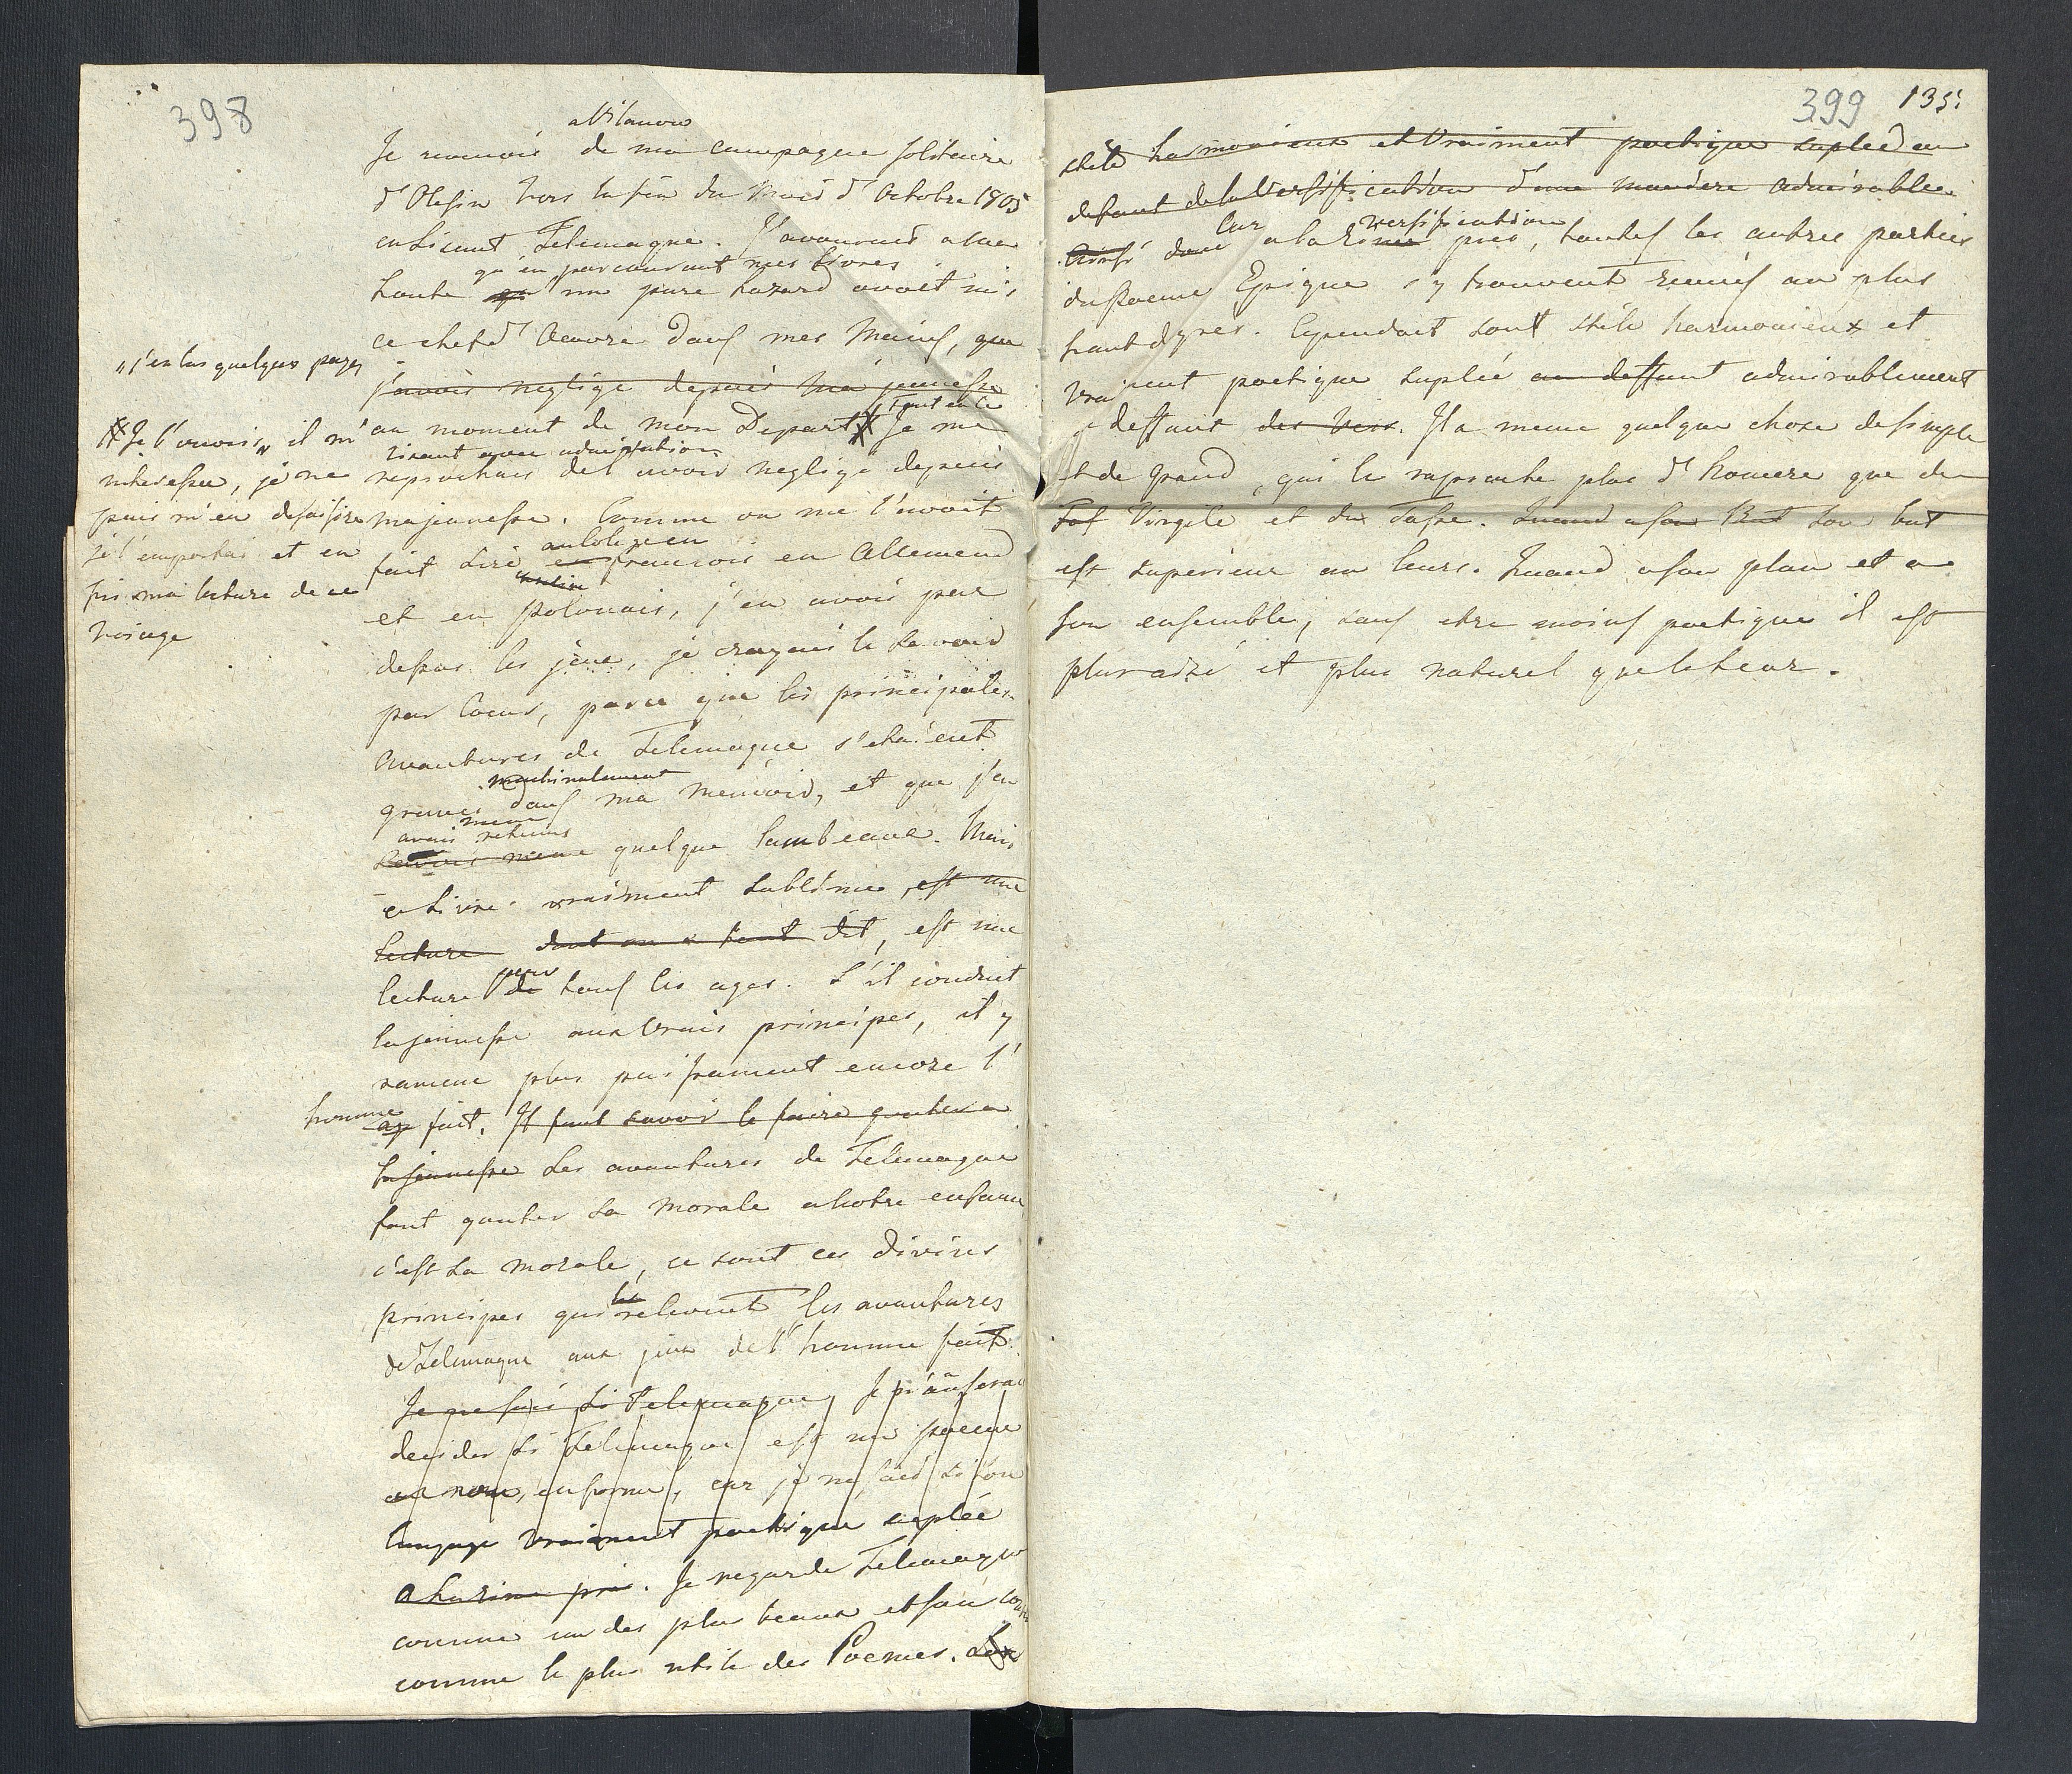 398
a Vilanow
Je revenois de ma campagne solitaire
d'Olesin vers la fin du Mois d'Octobre 1805
en Lisant Telemaque. J'avourois a ma
qu'en parcourant mes livres
honte qu' un pure hazard avoit mis
ce chef d'Oeuvre dans mes Mains, que
j'avois neglige depuis ma jeunesse
"j'en lus quelques pages
tout en le
au moment de mon Depart # Je me
# Je l'ouvris " il m'
lisant avec admiration
interessa, je ne
reprochais de l'avoir neglige depuis
puis m'en desaisire
ma jeunesse. Comme on me l'avoit
je l'emportai et en
au Colege en
fis ma lecture de ce
fait Lire en francois en Allemend
voiage
et en Polonais, j'en avois par
dessus les jeux, je croyais le savoir
par Coeur, parce que les principales
Avantures de Telemaque s'etaient
machinalement
gravees dans ma memoire, et que j'en
meme
avais retenus
savois meme quelque lambeaux. Mais
ce Livre vraiment sublime, est une
lecture dont on a tout dit, est une
pour
lecture de tous les ages. S'il conduit
la jeunesse aux vrais principes, il y
ramene plus puissament encore l'
homme
fait. Il faut savoir le faire gouter a
la jeunesse Les avantures de Telemaque
font gouter sa morale a notre enfance
c'est sa morale, ce sont ces divins
les
principes qui relevent les avantures
de Telemaque aux jeux de l'homme fait.
Je ne sais si Telemaque, Je n'auserai
decider si Telemaque est un poeme
ou non, en forme, car je ne sais si son
langage vraiment poetique suplée
a la rime pres. Je regarde Telemaque
comme un des plus beaux et sans
comme le plus utile des Poemes. Son
399 135
stile harmonieux et vraiment poetique suplee au
defaut de la Versification d'une maniere admirable
Car versification
Ainsi donc a la rime pres, toutes les autres parties
du Poeme Epique s'y trouvent reunis au plus
haut degres. Cependant sont stile harmonieux et
vraiment poetique suplée au deffaut admirablement
deffaut des Vers. Il a meme quelque chose de simple
et de grand, qui le raproche plus d'homere que de
Tas Virgile et du Tasse. Quand a son But son but
est superieur au leurs. Quand a son plan et a
son ensemble, sans etre moins poetique il est
plus aizé et plus naturel que le leur.